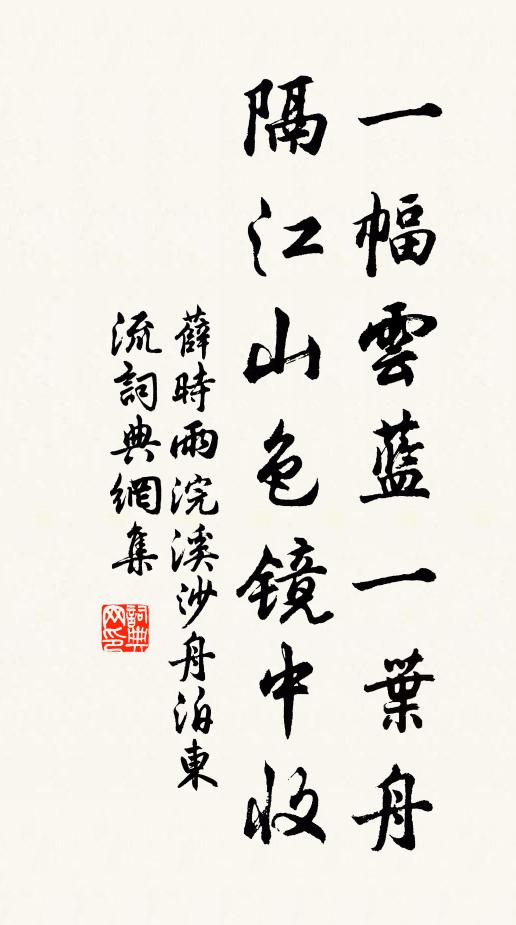 一幅雲藍一葉舟
隔江山色鏡中收
薛時雨浣溪沙舟泊東
流詞典網集
詞典
网印